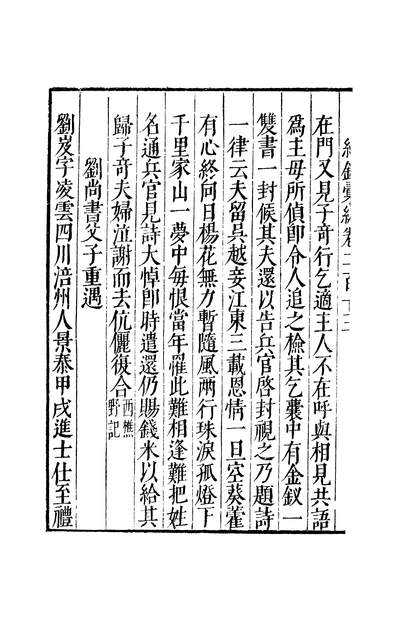 在門又見子奇行乞適主人不在呼與相見共語
爲主毋所偵卽令人追之檢其乞囊中有金釵一
雙書一封候其夫還以告兵官啓封視之乃題詩
一律云夫留吳越妾江東三載恩情一旦空葵藿
有心終向日楊花無力暫隨風兩行珠淚孤燈下
千里家山一夢中每恨當年罹此難相逢難把姓
名通兵官見詩大悼卽時遣還仍賜錢米以給其
歸子奇夫婦泣謝而去伉儷復合西樵野記
劉尚書父子重遇
劉岌字凌雲四川涪州人景泰甲戌進士仕至禮